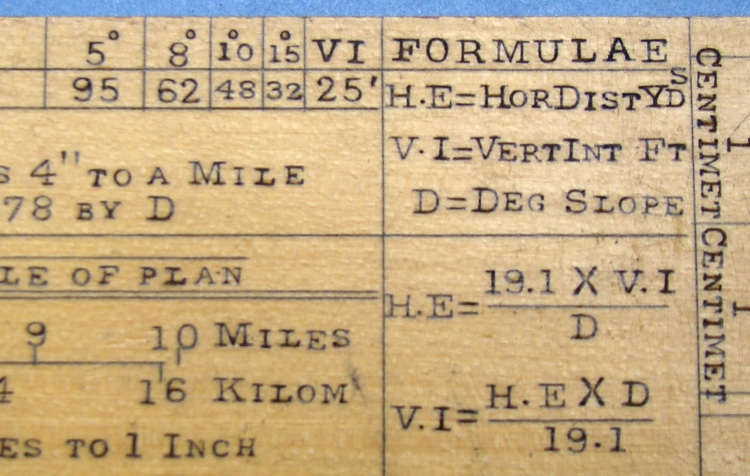 5° 8° 10° 15° VI
95 62 48 32 25'
S 4" TO A MILE
78 BY D
LE OF PLAN
9 10 MILES
4 16 KILOM
ES TO 1 INCH
FORMULAE
H.E=HORDISTYDS
V.I=VERTINT FT
D=DEG SLOPE
H.E=19.1 X V.I
D
V.I=H.E X D
19.1
CENTIMET CENTIMET
1
1